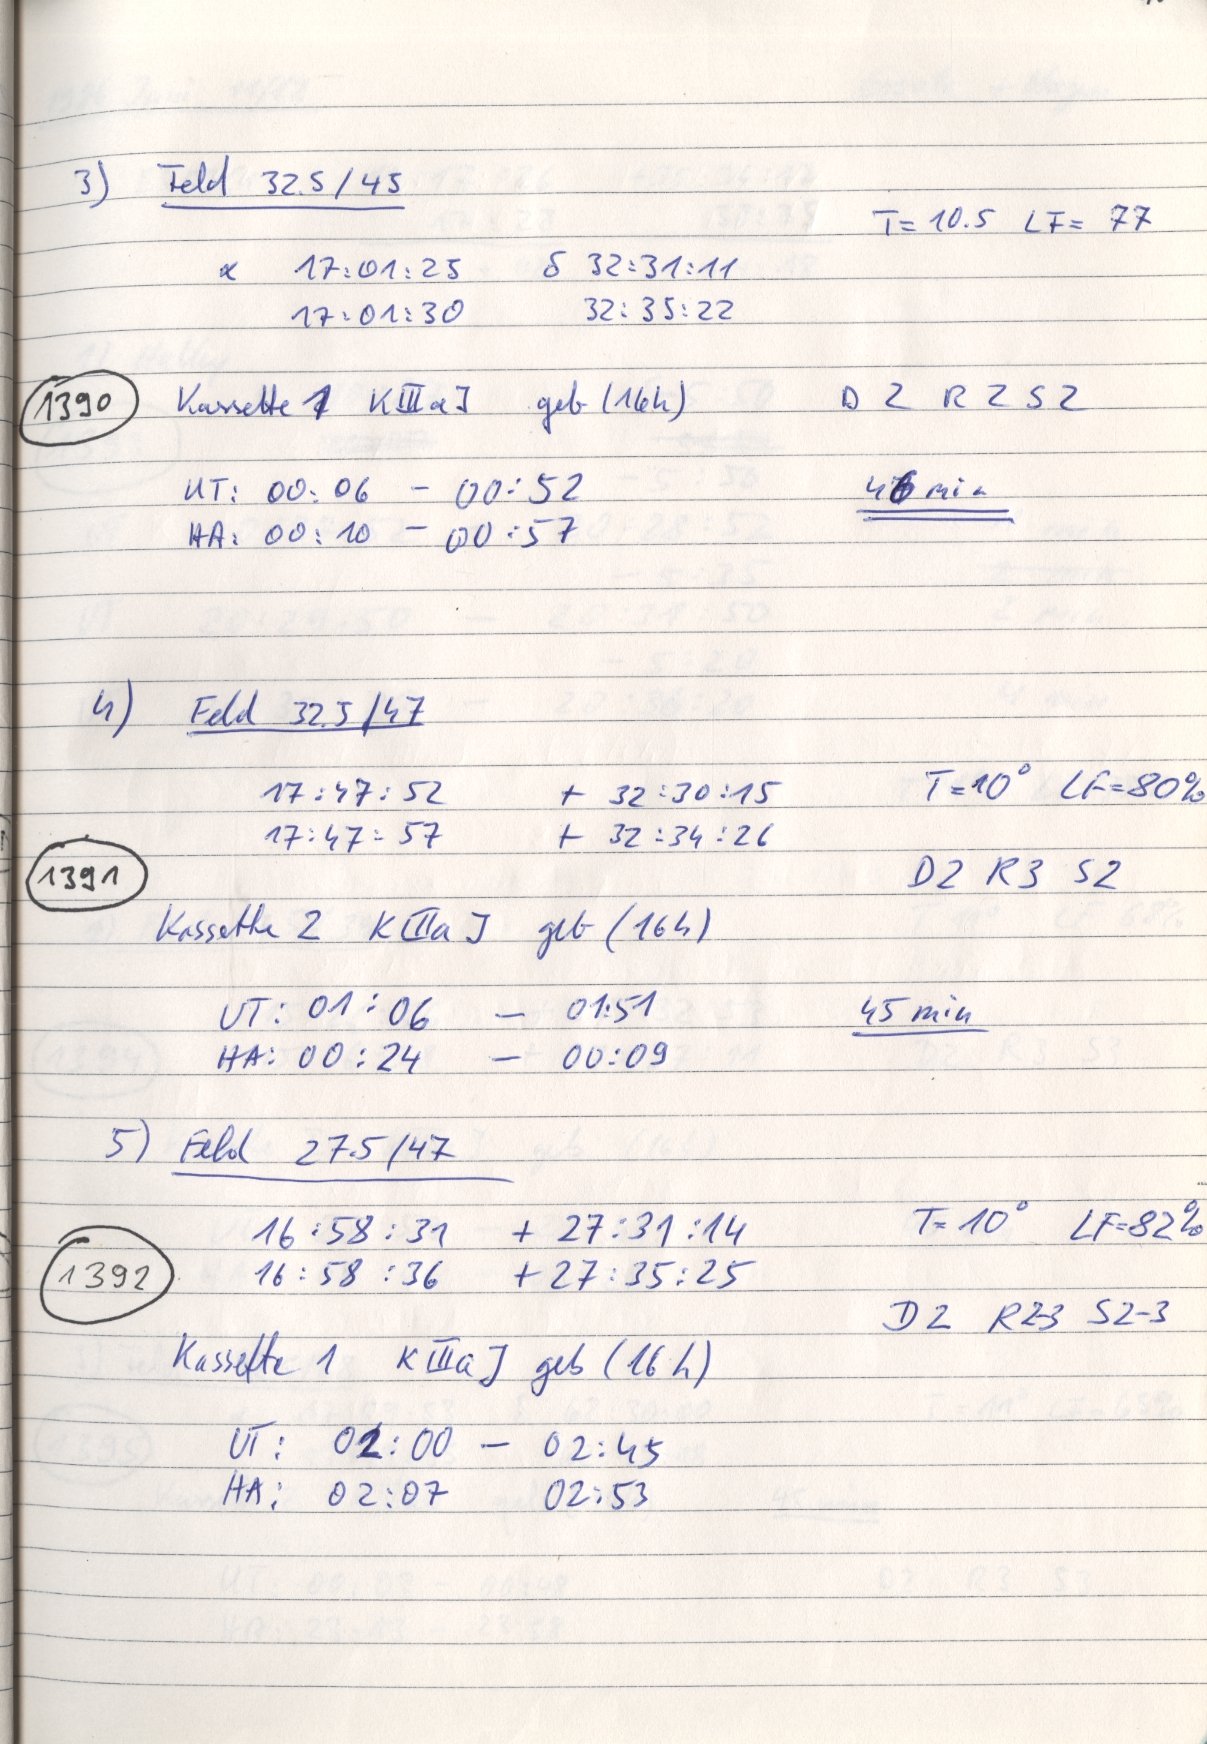 3) Feld 32.5/45
T= 10.5 LF= 77
α 17:01:25 δ 32:31:11
17:01:30 32:35:22
1390 Kassette 1 K III a J geb (16h) D 2 R 2 S 2
UT: 00:06 - 00:52 46 min
HA: 00:10 - 00:57
4) Feld 32.5/47
17:47:52 + 32:30:15 T=10° LF=80%
17:47:57 + 32:34:26
1391 D2 R3 S2
Kassette 2 K III a J geb (16h)
UT: 01:06 - 01:51 45 min
HA: 00:24 - 00:09
5) Feld 27.5/47
16:58:31 + 27:31:14 T= 10° LF=82%
1392 16:58:36 + 27:35:25
D2 R2-3 S2-3
Kassette 1 K III a J geb (16h)
UT: 02:00 - 02:45
HA: 02:07 02:53